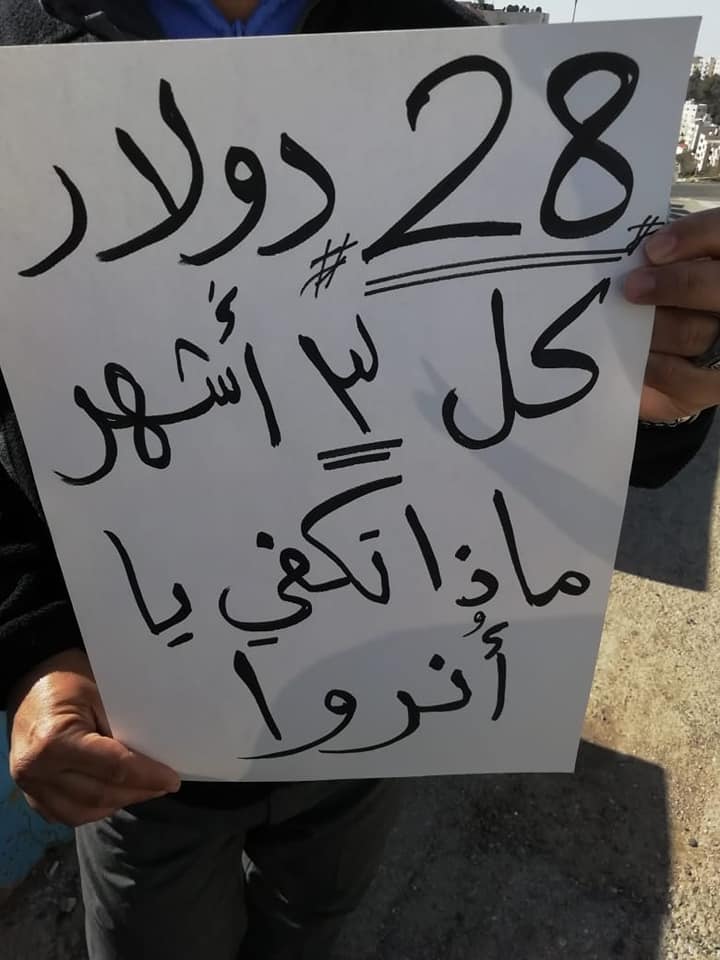 #28# دولار
كل ٣ أشهر
ماذا تكفي يا
أُنروا